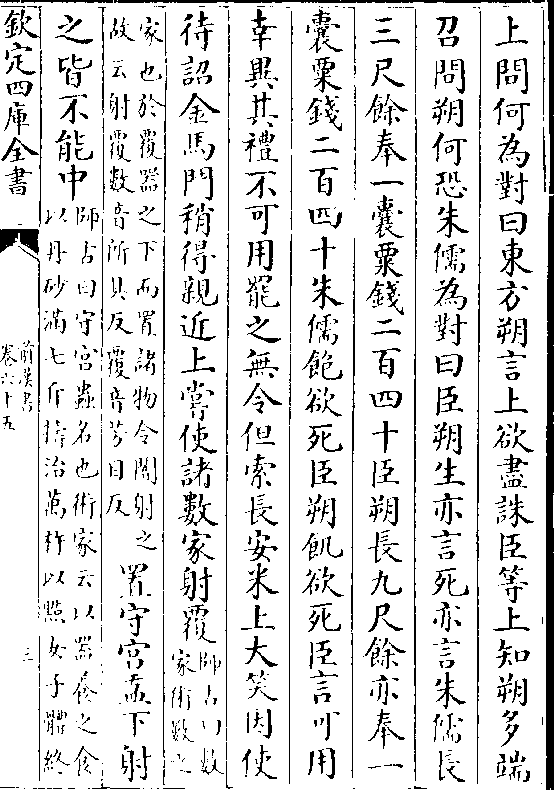 上問何為對曰東方朔言上欲盡誅臣等上知朔多端
召問朔何恐朱儒為對曰臣朔生亦言死亦言朱儒長
三尺餘奉一囊粟錢二百四十臣朔長九尺餘亦奉一
囊粟錢二百四十朱儒飽欲死臣朔飢欲死臣言可用
幸異其禮不可用罷之無令但索長安米上大笑因使
待詔金馬門稍得親近上嘗使諸數家射覆師古曰數家術數之
家也於覆器之下而置諸物令闇射之故云射覆數音所具反覆音芳目反置守宫盂下射
之皆不能中師古曰守宫蟲名也術家云以器養之食以丹砂滿七斤擣治萬杵以點女子體終
欽定四庫全書
前漢書
卷六十五
三